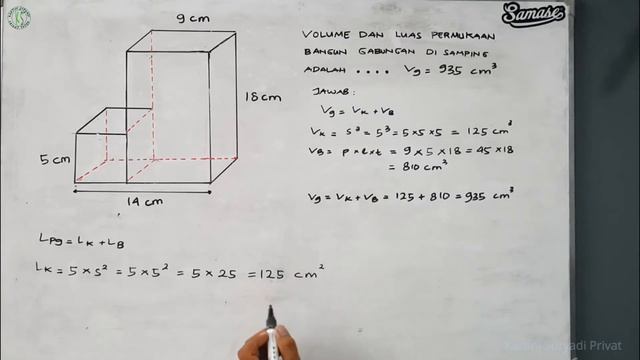 Samase
9 cm
VOLUME DAN LUAS PERMUKAAN
BANGUN GABUNGAN DI SAMPING
ADALAH .... Vg = 935 cm³
18 cm
JAWAB:
Vg = VK + VB
VK = s³ = 5³ = 5 × 5 × 5 = 125 cm³
5 cm
VB = p × l × t = 9 × 5 × 18 = 45 × 18
= 810 cm³
14 cm
Vg = VK + VB = 125 + 810 = 935 cm³
LPg = LK + LB
LK = 5 × s² = 5 × 5² = 5 × 25 = 125 cm²
Privat